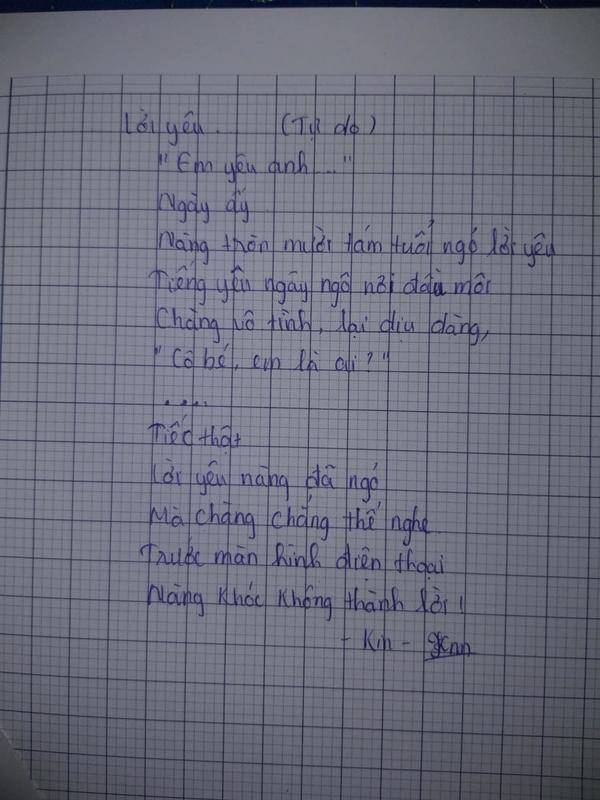 Lời yêu. (Tự do)
"Em yêu anh..."
Ngày ấy
Nàng thôn mười tám tuổi ngỏ lời yêu
Tiếng yêu ngây ngô nơi đầu môi
Chàng vô tình, lại dịu dàng,
"Cô bé, em là ai?"
.....
Tiếc thật
Lời yêu nàng đã ngỏ
Mà chàng chẳng thể nghe
Trước màn hình điện thoại
Nàng khóc không thành lời!
- Kin -